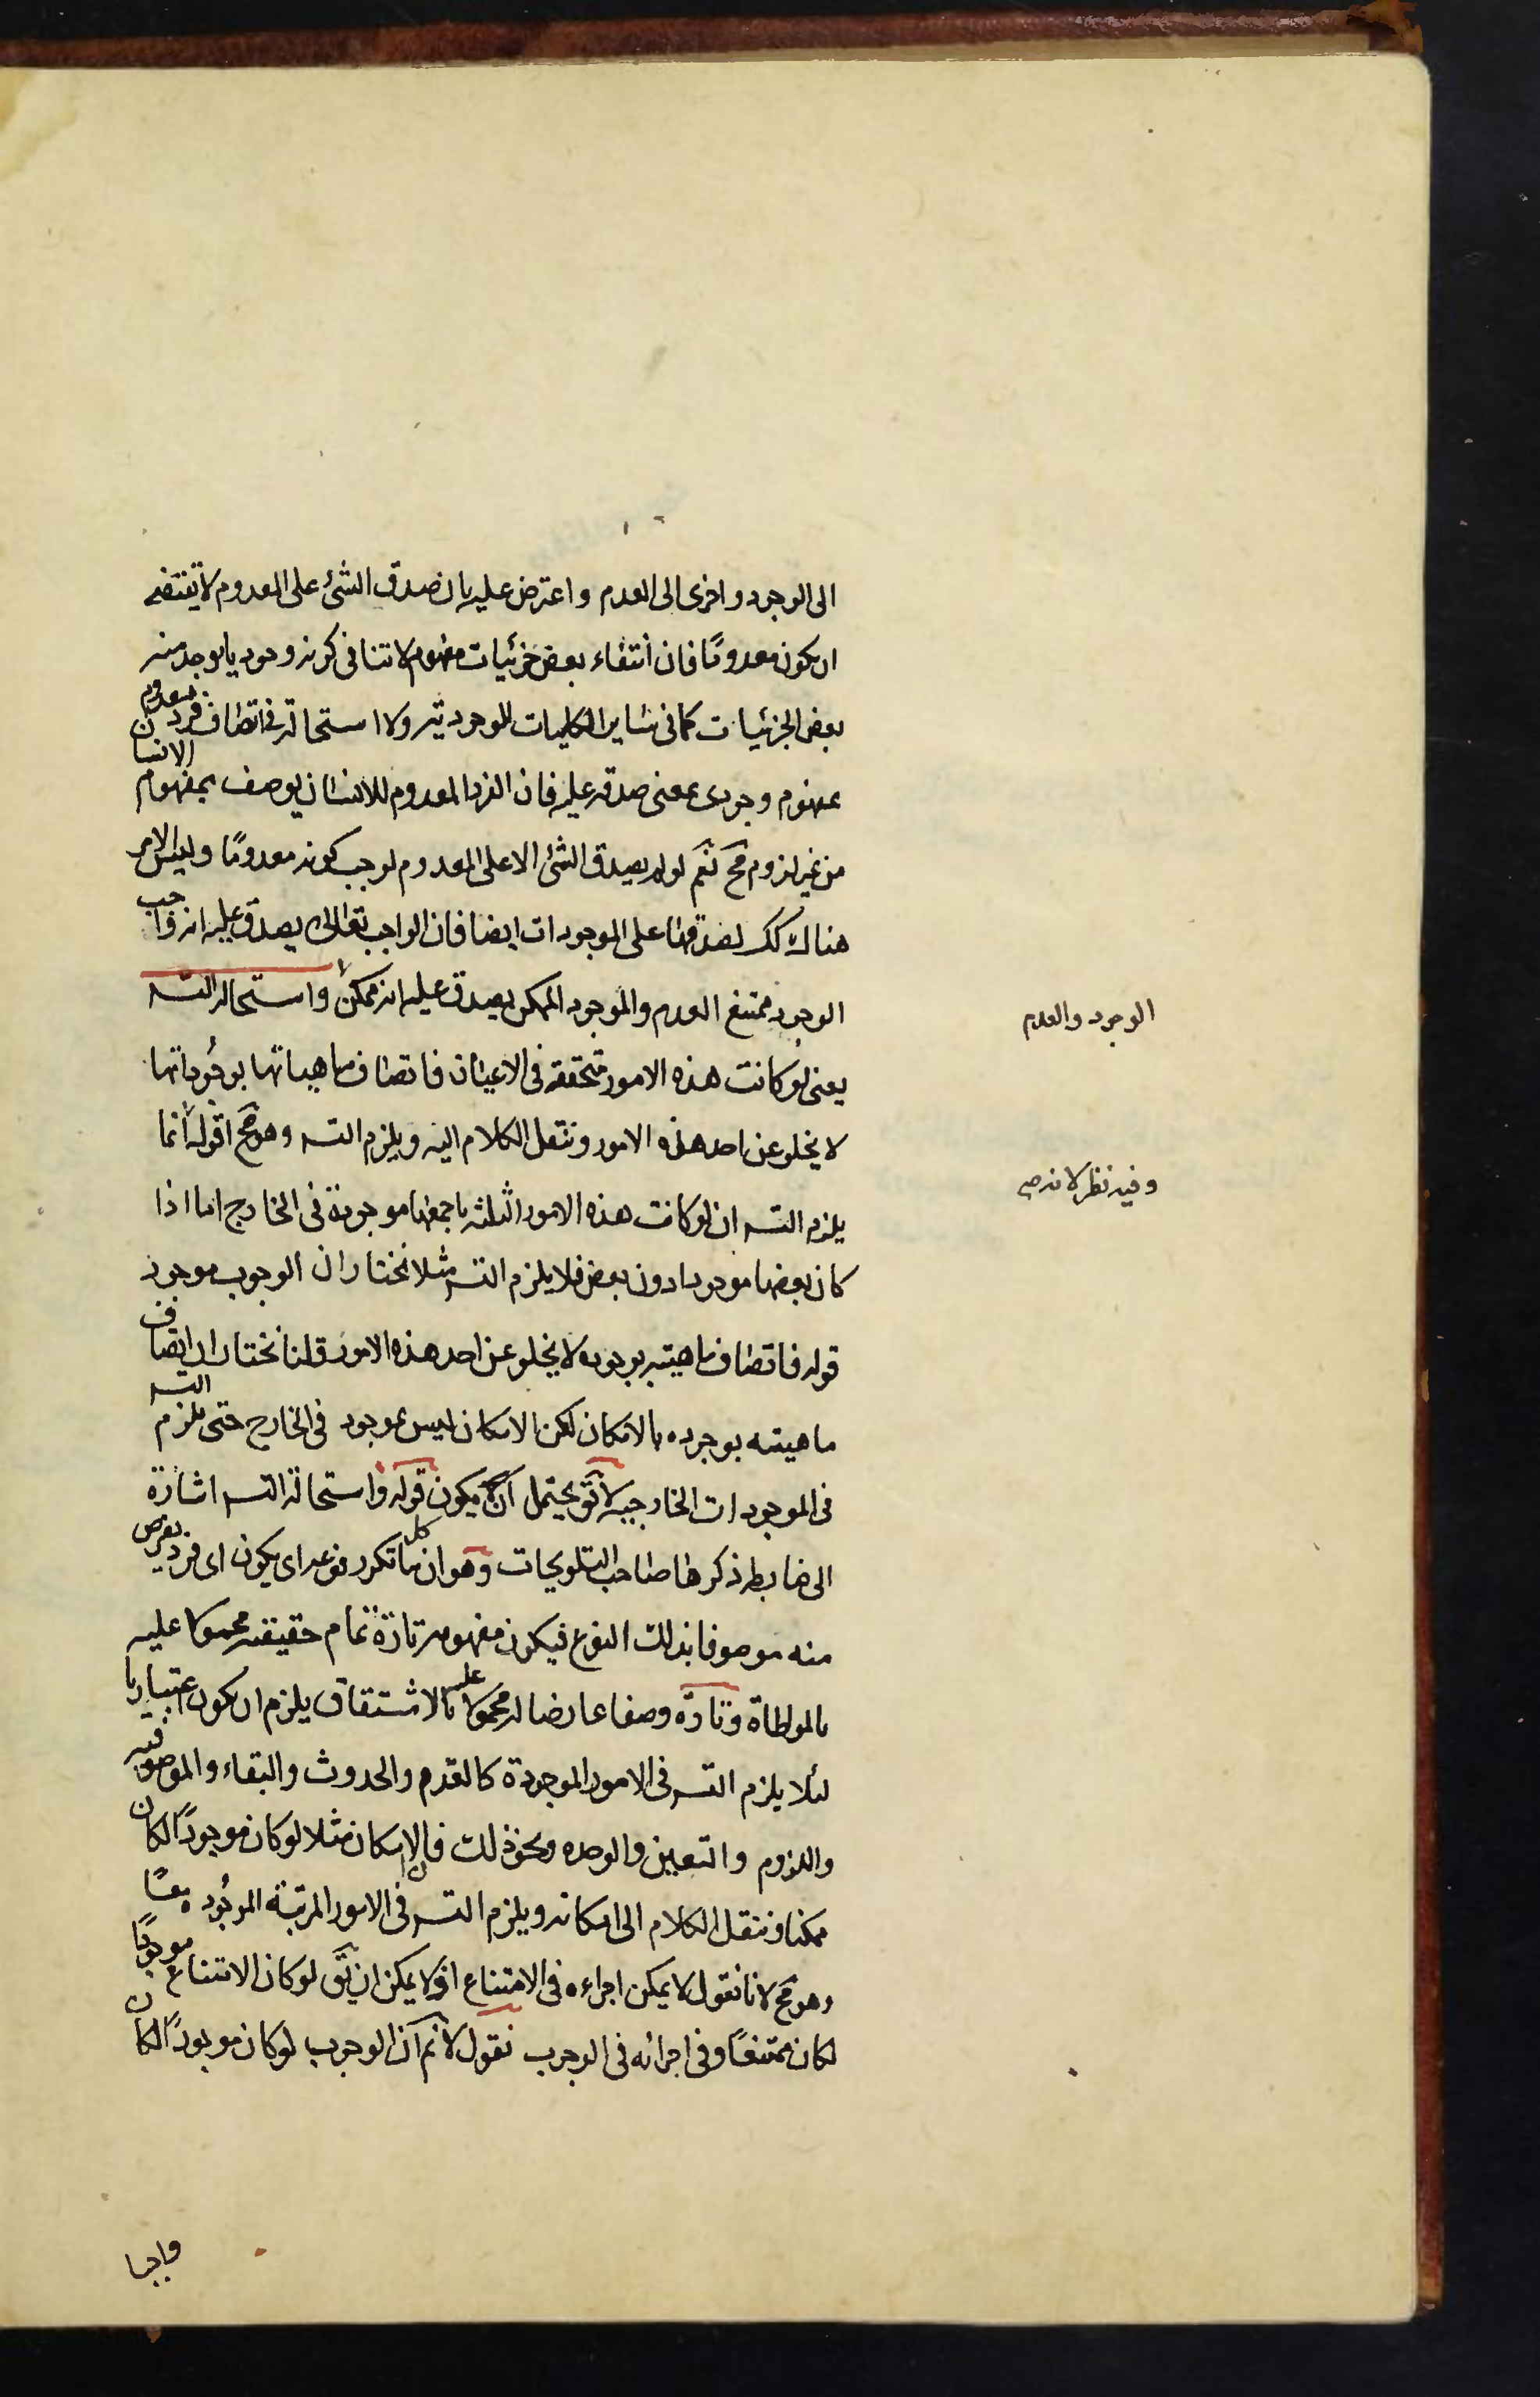 الى الوجود واخرى الى العدم واعترض عليه بان صدق الشئ على المعدوم لا يقتضى
ان يكون معدومًا فان انتفاء بعض جزئيات مفهوم لا تنافى كونه وجوديا يوجد منه
بعض الجزئيات كما فى سائر الكليات الموجودية ولا استحالة فى اتصاف فرد معدوم
بمفهوم وجودى بمعنى صدقه عليه فان الفرد المعدوم للانسان يوصف بمفهوم الانسان
من غير لزوم مح نعم لو لم يصدق الشئ الا على المعدوم لوجب كونه معدومًا وليس الامر
هناك كك لصدقها على الموجودات ايضا فان الواجب تعالى يصدق عليه انه واجب
الوجود ممتنع العدم والموجود الممكن يصدق عليه انه ممكن واستحالة التسـ
الوجود والعدم
يعنى لو كانت هذه الامور متحققة فى الاعيان فاتصاف ماهياتها بوجوداتها
لا يخلو عن احد هذه الامور وننقل الكلام اليه ويلزم التسـ وهو مح اقول انما
وفيه نظر لانه
يلزم التسـ ان لو كانت هذه الامور الثلثه باجمعها موجودة فى الخارج اما اذا
كان بعضها موجودا دون بعض فلا يلزم التسـ مثلا نختار ان الوجوب موجود
قوله فاتصاف ماهيته بوجوده لا يخلو عن احد هذه الامور قلنا نختار ان اتصاف
ماهيته بوجوده بالامكان لكن الامكان ليس بموجود فى الخارج حتى يلزم التسـ
فى الموجودات الخارجيه لا يق يحتمل ان يكون قوله واستحالة التسـ اشارة
الى ضابطه ذكرها صاحب التلويحات وهو ان كل ما تكرر نوعه اى يكون اى فرد يفرض
منه موصوفا بذلك النوع فيكون مفهومه تارة تمام حقيقته محمولا عليه
بالمواطاة وتارة وصفا عارضا له محمولا عليه بالاشتقاق يلزم ان يكون اعتباريا
لئلا يلزم التسـ فى الامور الموجودة كالقدم والحدوث والبقاء والموصوفيه
واللزوم والتعين والوحده ونحو ذلك فان الامكان مثلا لو كان موجودًا لكان
ممكنا وننقل الكلام الى امكانه ويلزم التسـ فى الامور المرتبة الموجوده معًا
وهو مح لانا نقول لا يمكن اجراءه فى الامتناع اذ لا يمكن ان يق لو كان الامتناع موجودًا
لكان ممتنعًا وفى اجرائه فى الوجوب نقول لا نم ان الوجوب لو كان موجودًا لكان
واجبا